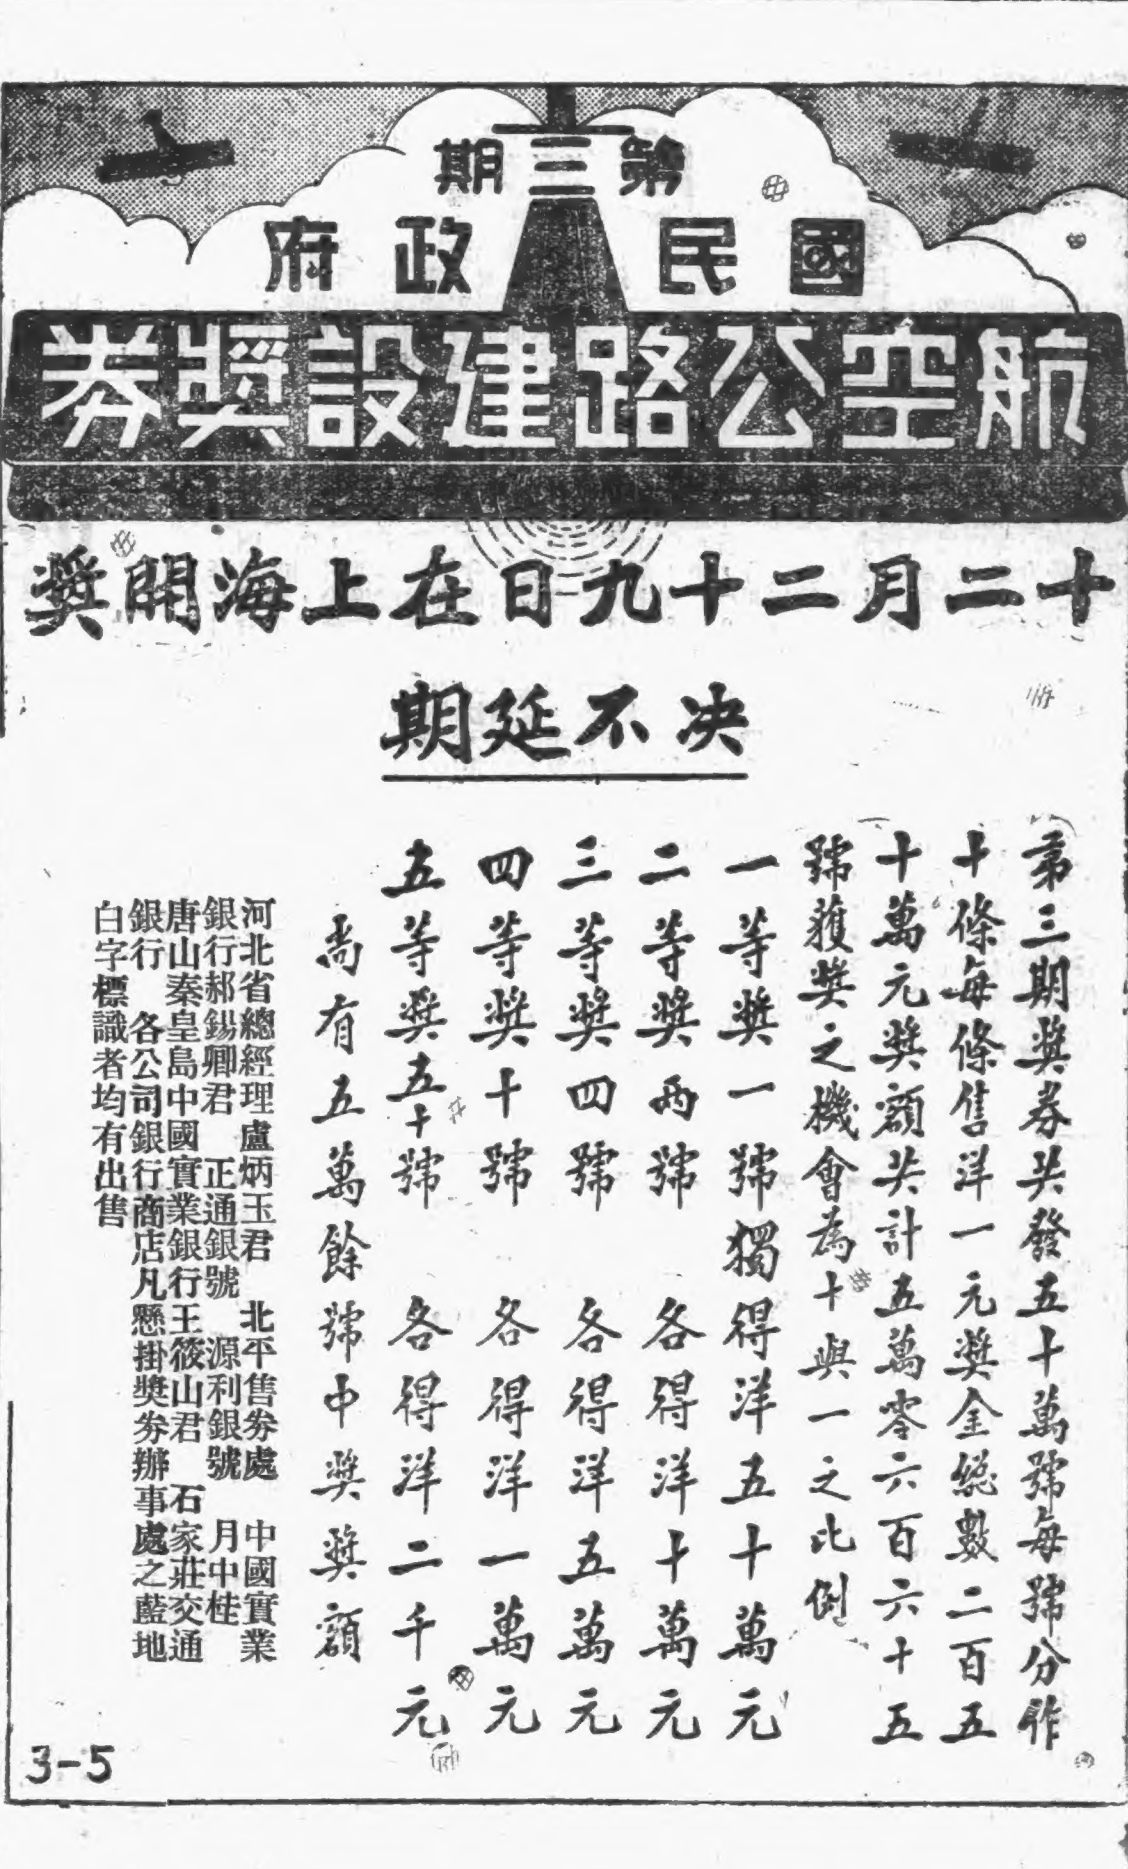 第三期
國民政府
航空公路建設獎券
十二月二十九日在上海開獎
決不延期
第三期獎券共發五十萬號每號分作
十條每條售洋一元獎金總數二百五
十萬元獎額共計五萬零六百六十五
號獲獎之機會為十與一之比例
一等獎一號獨得洋五十萬元
二等獎兩號 各得洋十萬元
三等獎四號 各得洋五萬元
四等獎十號 各得洋一萬元
五等獎五十號 各得洋二千元
尚有五萬餘號中獎獎額
河北省總經理盧炳玉君 北平售劵處 中國實業
銀行郝錫卿君 正通銀號 源利銀號 月中桂
唐山秦皇島中國實業銀行王筱山君 石家莊交通
銀行 各公司銀行商店凡懸掛獎劵辦事處之藍地
白字標識者均有出售
3-5